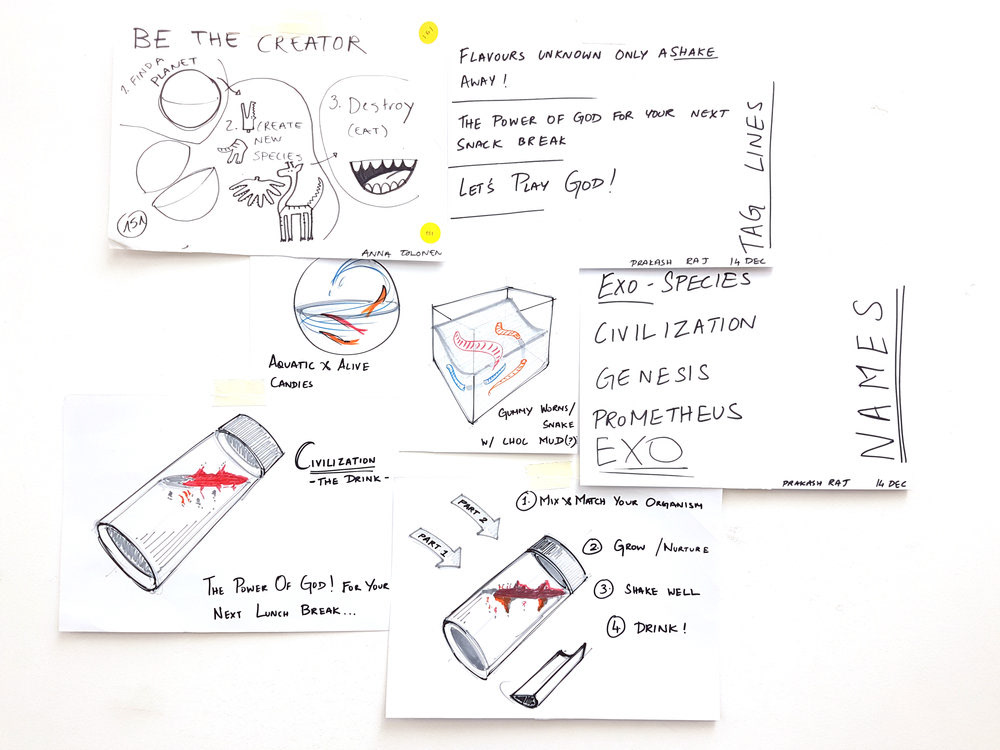 BE THE CREATOR
1. FIND A
PLANET
2. CREATE
NEW
SPECIES
3. Destroy
(EAT)
151
ANNA TOLONEN
FLAVOURS UNKNOWN ONLY A SHAKE
AWAY!
THE POWER OF GOD FOR YOUR NEXT
SNACK BREAK
LET'S PLAY GOD!
TAG LINES
PRAKASH RAJ 14 DEC
EXO-SPECIES
CIVILIZATION
GENESIS
PROMETHEUS
EXO
NAMES
PRAKASH RAJ 14 DEC
AQUATIC & ALIVE
CANDIES
GUMMY WORMS/
SNAKE
W/ CHOL MUD(?)
CIVILIZATION
- THE DRINK -
THE POWER OF GOD! FOR YOUR
NEXT LUNCH BREAK...
PART 1
PART 2
1. MIX & MATCH YOUR ORGANISM
2 GROW / NURTURE
3. SHAKE WELL
4 DRINK!